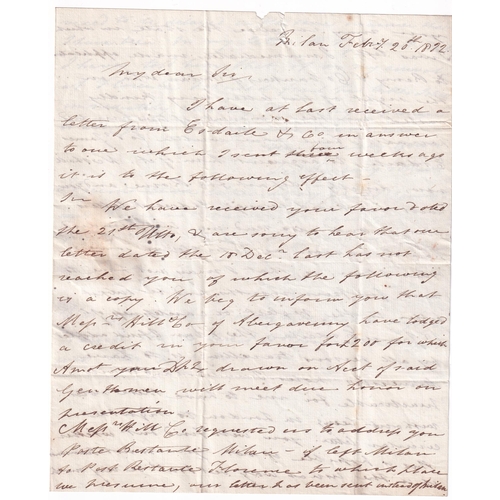 Milan Feby. 26th 1822
My dear Sir
I have at last received a
letter from Esdaile & Co in answer
to one which I sent three four weeks ago
it is to the following effect —
Sir We have received your favor dated
the 21st Ulto, & are sorry to hear that our
letter dated the 18 Decr last has not
reached you of which the following
is a copy. We beg to inform you that
Messrs Hill & Co of Abergavenny have lodged
a credit in your favor for £200 for which
Amot your Dfts drawn on Acct of said
Gentlemen will meet due honor on
presentation
Messrs Hill Co requested us to address you
Poste Restante Milan — if left Milan
to Post Restante Florence to which place
we presume, our letter has been sent instead of Milan